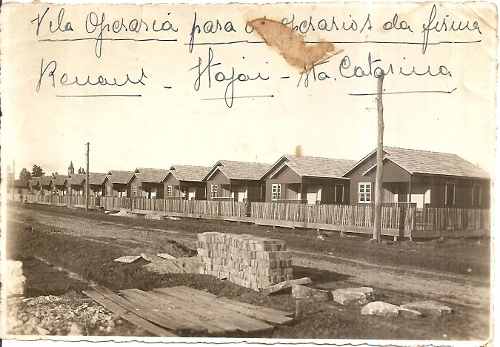 Vila Operaria para os operarios da firma
Renaux - Itajaí - Sta. Catarina